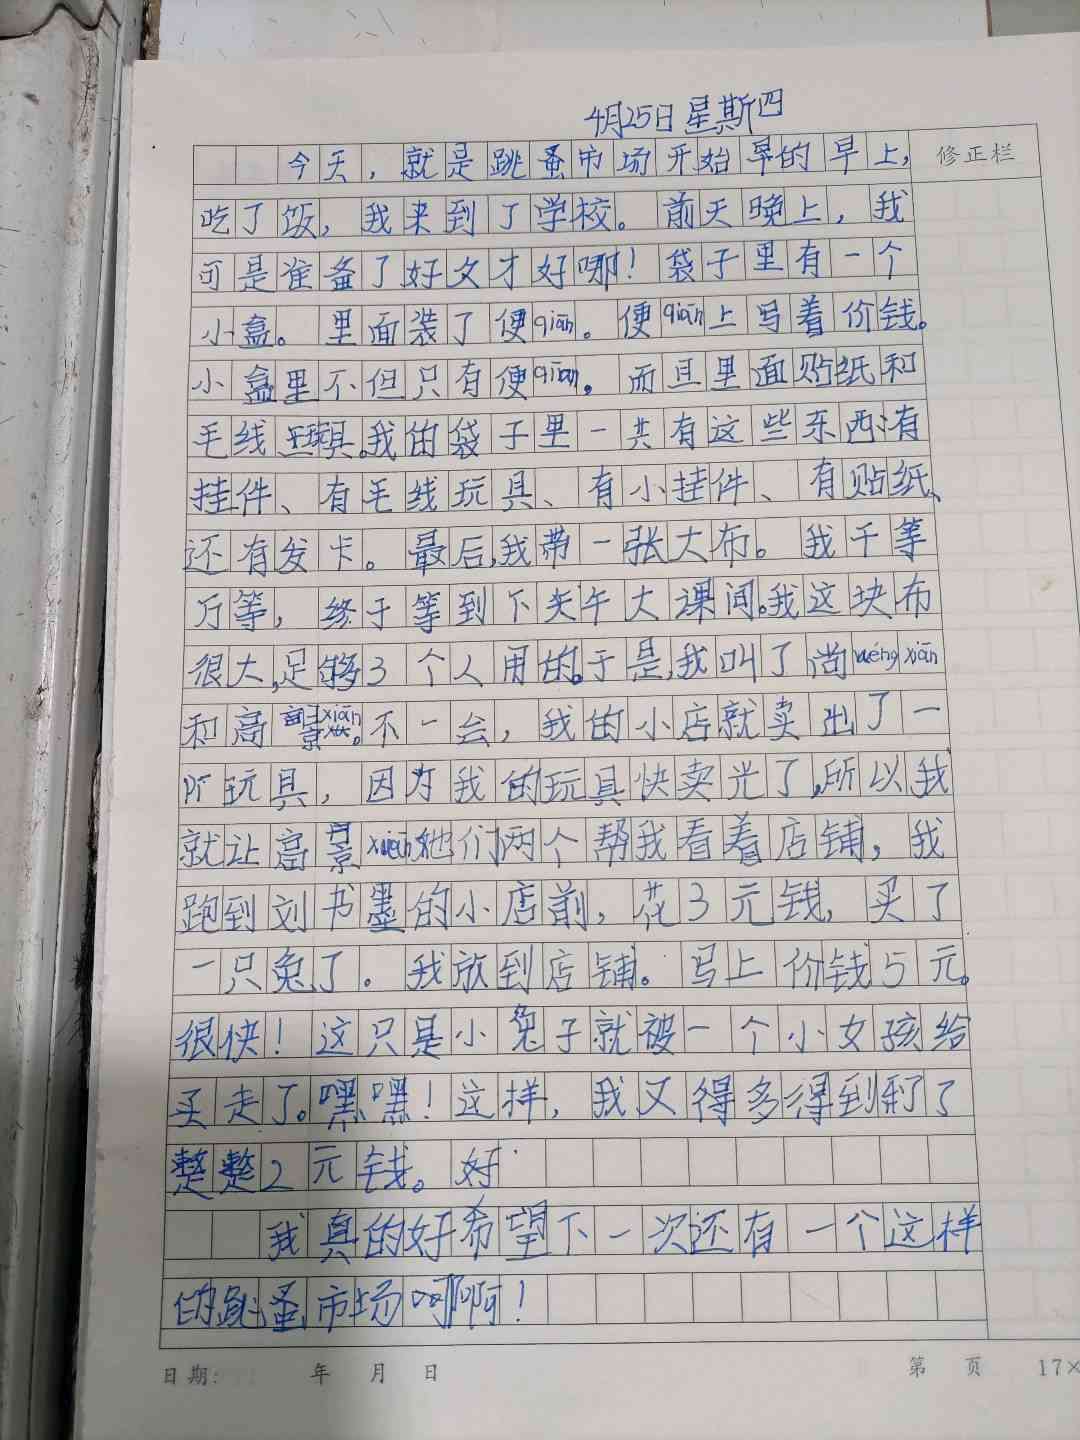 4月25日星斯四
今天，就是跳蚤市场开始早的早上，
修正栏
吃了饭，我来到了学校。前天晚上，我
可是准备了好文才好哪！袋子里有一个
小盒。里面装了便qiān。便qiān上写着价钱。
小盒里不但只有便qiān。而且里面贴纸和
毛线玩具。我的袋子里一共有这些东西：有
挂件、有毛线玩具、有小挂件、有贴纸、
还有发卡。最后，我带一张大布。我千等
万等，终于等到下午大课间。我这块布
很大，足够3个人用的。于是，我叫了尚 xiān
和高景xiān。不一会，我的小店就卖出了一
玩具，因为我的玩具快卖光了，所以我
就让高景她们两个帮我看着店铺，我
跑到刘书墨的小店前，花3元钱，买了
一只兔了。我放到店铺。写上价钱5元。
很快！这只是小兔子就被一个小女孩给
买走了。嘿嘿！这样，我又得多得到利了
整整2元钱。好
我真的好希望下一次还有一个这样
的跳蚤市场啊！
日期： 年 月 日
第 页 17×